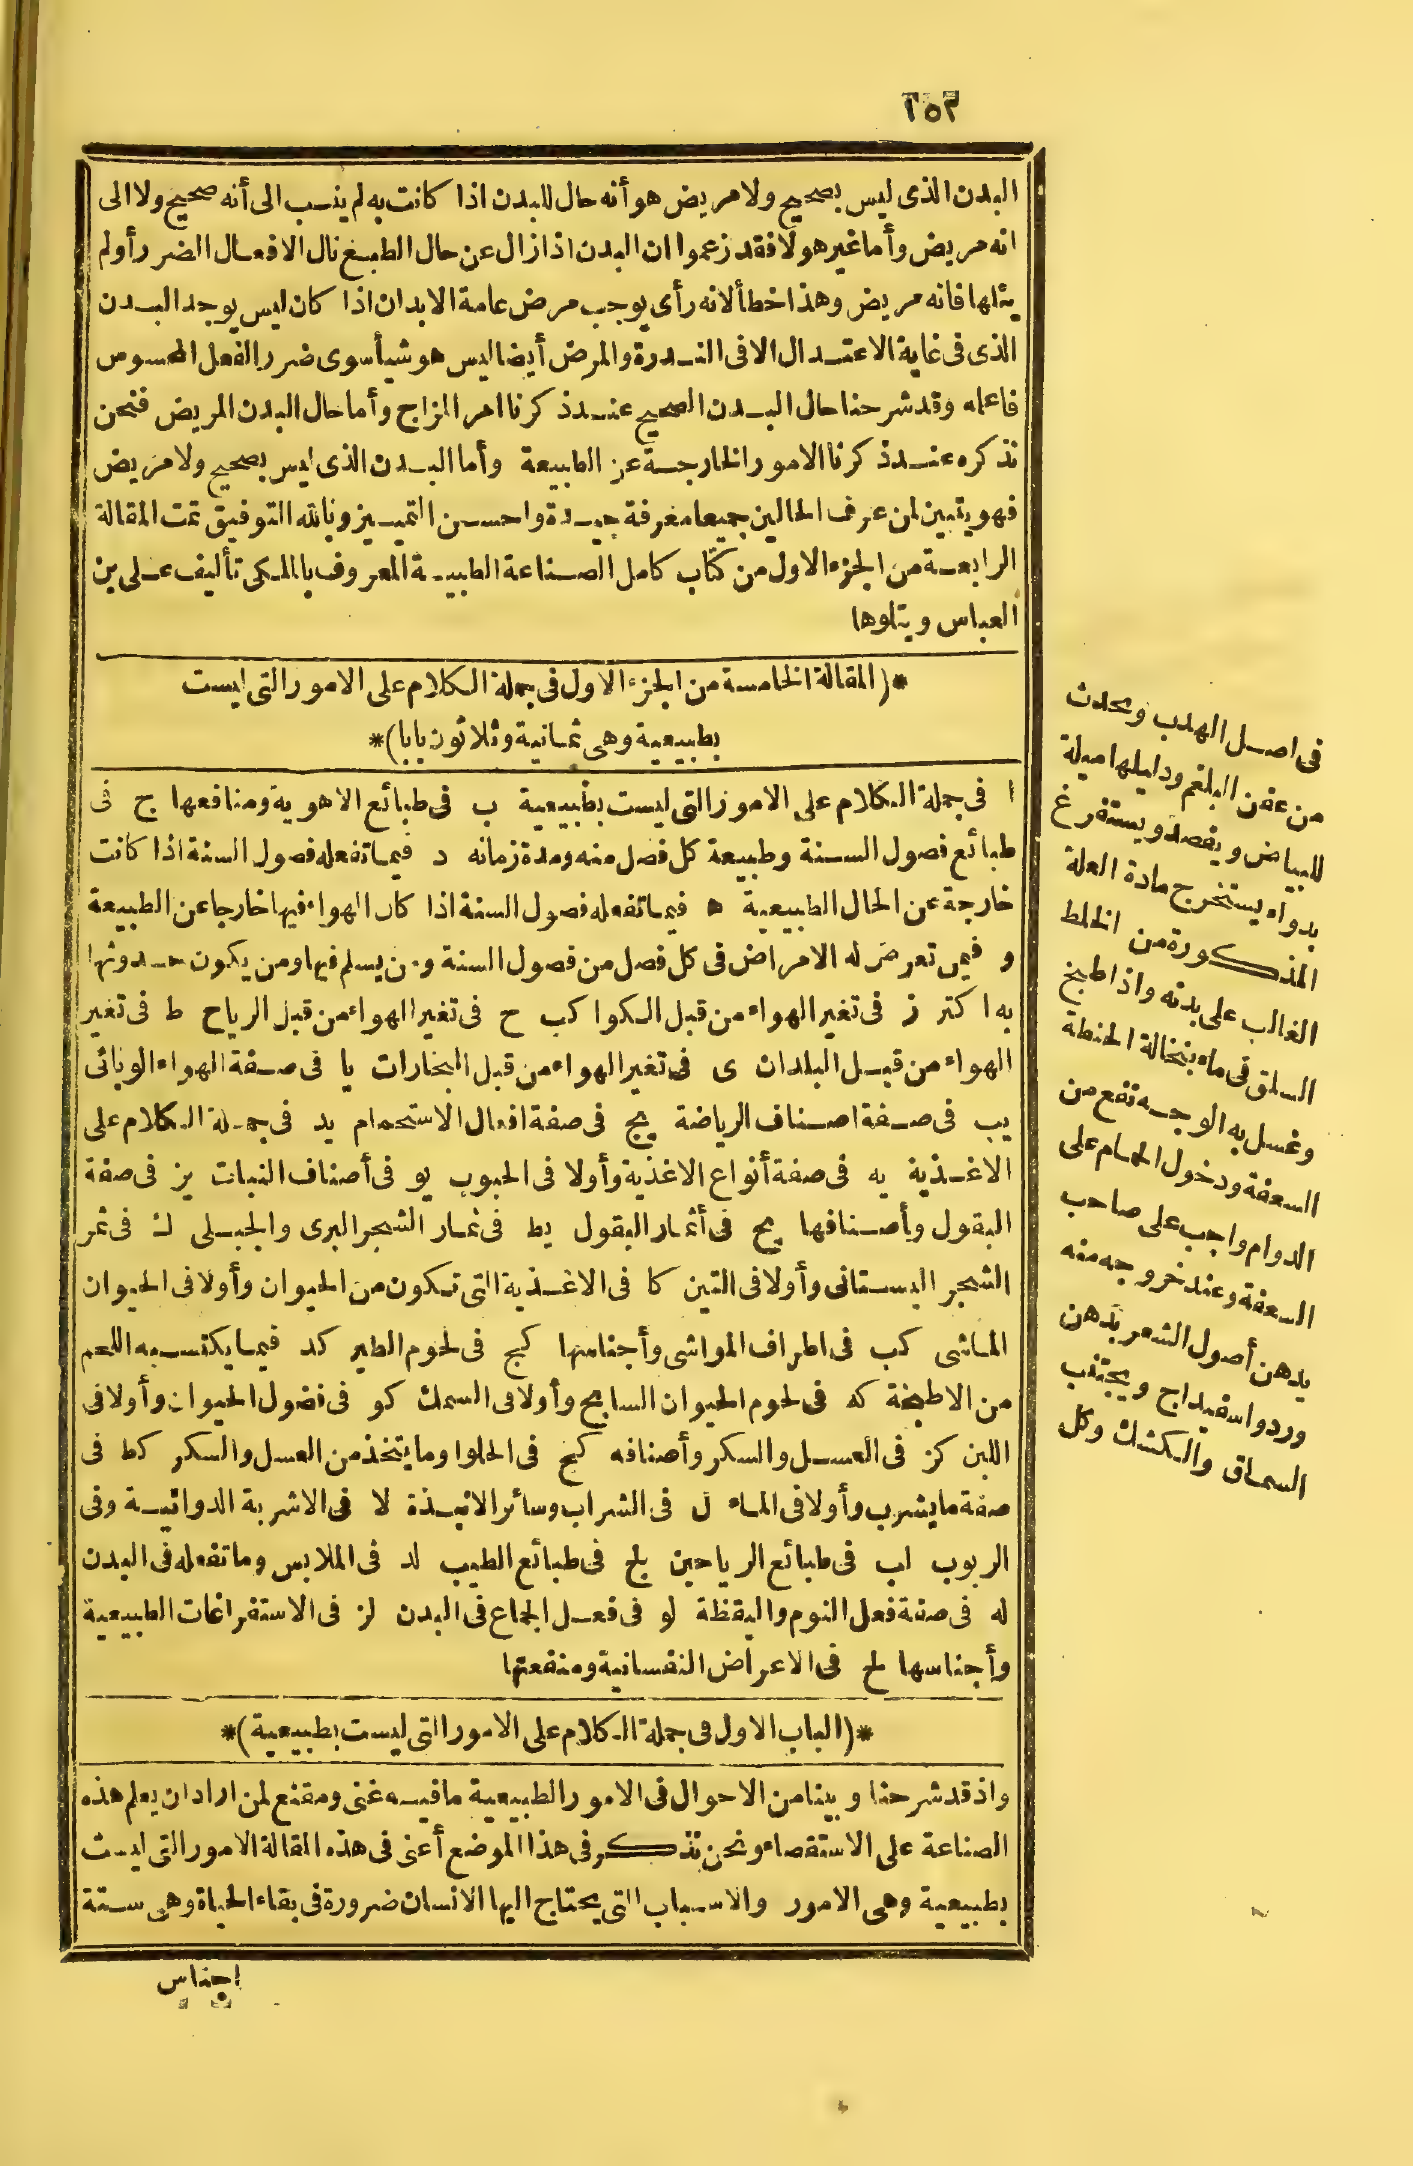 ١٥٢
البدن الذى ليس بصحيح ولا مريض هو أنه حال للبدن اذا كانت به لم ينسب الى أنه صحيح ولا الى
انه مريض وأما غير هولا فقد زعموا ان البدن اذا زال عن حال الطبع نال الافعال الضرر أولم
ينلها فانه مريض وهذا خطأ لانه رأى يوجب مرض عامة الابدان اذا كان ليس يوجد البدن
الذى فى غاية الاعتدال الا فى الندرة والمرض أيضا ليس هو شيأ سوى ضرر الفعل المحسوس
فاعلمه وقد شرحنا حال البدن الصحيح عند ذكرنا امر المزاج وأما حال البدن المريض فنحن
نذكره عند ذكرنا الامور الخارجة عن الطبيعة وأما البدن الذى ليس بصحيح ولا مريض
فهو يتبين لمن عرف الحالين جميعا معرفة جيدة واحسن التمييز وبالله التوفيق تمت المقالة
الرابعة من الجزء الاول من كتاب كامل الصناعة الطبية المعروف بالملكى تأليف على بن
العباس ويتلوها
*(المقالة الخامسة من الجزء الاول فى جملة الكلام على الامور التى ليست
بطبيعية وهى ثمانية وثلاثون بابا)*
ا فى جملة الكلام على الامور التى ليست بطبيعية ب فى طبائع الاهوية ومنافعها ج فى
طبائع فصول السنة وطبيعة كل فصل منه ومدة زمانه د فيما تفعله فصول السنة اذا كانت
خارجة عن الحال الطبيعية ه فيما تفعله فصول السنة اذا كان الهواء فيها خارجا عن الطبيعة
و فيمن تعرض له الامراض فى كل فصل من فصول السنة ومن يسلم فيها ومن يكون حدوثها
به اكثر ز فى تغير الهواء من قبل الكواكب ح فى تغير الهواء من قبل الرياح ط فى تغير
الهواء من قبل البلدان ى فى تغير الهواء من قبل البخارات يا فى صفة الهواء الوبائى
يب فى صفة اصناف الرياضة يج فى صفة افعال الاستحمام يد فى جملة الكلام على
الاغذية يه فى صفة أنواع الاغذية وأولا فى الحبوب يو فى أصناف النبات يز فى صفة
البقول وأصنافها يح فى أثمار البقول يط فى ثمار الشجر البرى والجبلى ك فى ثمر
الشجر البستانى وأولا فى التين كا فى الاغذية التى تكون من الحيوان وأولا فى الحيوان
الماشى كب فى اطراف المواشى وأجناسها كج فى لحوم الطير كد فيما يكتسبه اللحم
من الاطبخة كه فى لحوم الحيوان السابح وأولا فى السمك كو فى فضول الحيوان وأولا فى
اللبن كز فى العسل والسكر وأصنافه كح فى الحلوا وما يتخذ من العسل والسكر كط فى
صفة ما يشرب وأولا فى الماء ل فى الشراب وسائر الانبذة لا فى الاشربة الدوائية وفى
الربوب لب فى طبائع الرياحين لج فى طبائع الطيب لد فى الملابس وما تفعله فى البدن
له فى صفة فعل النوم واليقظة لو فى فعل الجماع فى البدن لز فى الاستفراغات الطبيعية
وأجناسها لح فى الاعراض النفسانية ومنفعتها
*(الباب الاول فى جملة الكلام على الامور التى ليست بطبيعية)*
واذ قد شرحنا وبينا من الاحوال فى الامور الطبيعية ما فيه غنى ومقنع لمن اراد ان يعلم هذه
الصناعة على الاستقصاء ونحن نذكر فى هذا الموضع أعنى فى هذه المقالة الامور التى ليست
بطبيعية وهى الامور والاسباب التى يحتاج اليها الانسان ضرورة فى بقاء الحياة وهى ستة
اجناس
فى اصل الهدب ويحدث
من عفن البلغم ودليلها ميله
للبياض ويفصد ويستفرغ
بدواء يستخرج مادة العلة
المذكورة من الخلط
الغالب على بدنه واذا طبخ
السلق فى ماء بنخالة الحنطة
وغسل به الوجه نفع من
السعفة ودخول الحمام على
الدوام واجب على صاحب
السعفة وعند خروجه منه
يدهن أصول الشعر بدهن
ورد واسفيداج ويجتنب
السماق والكشك وكل